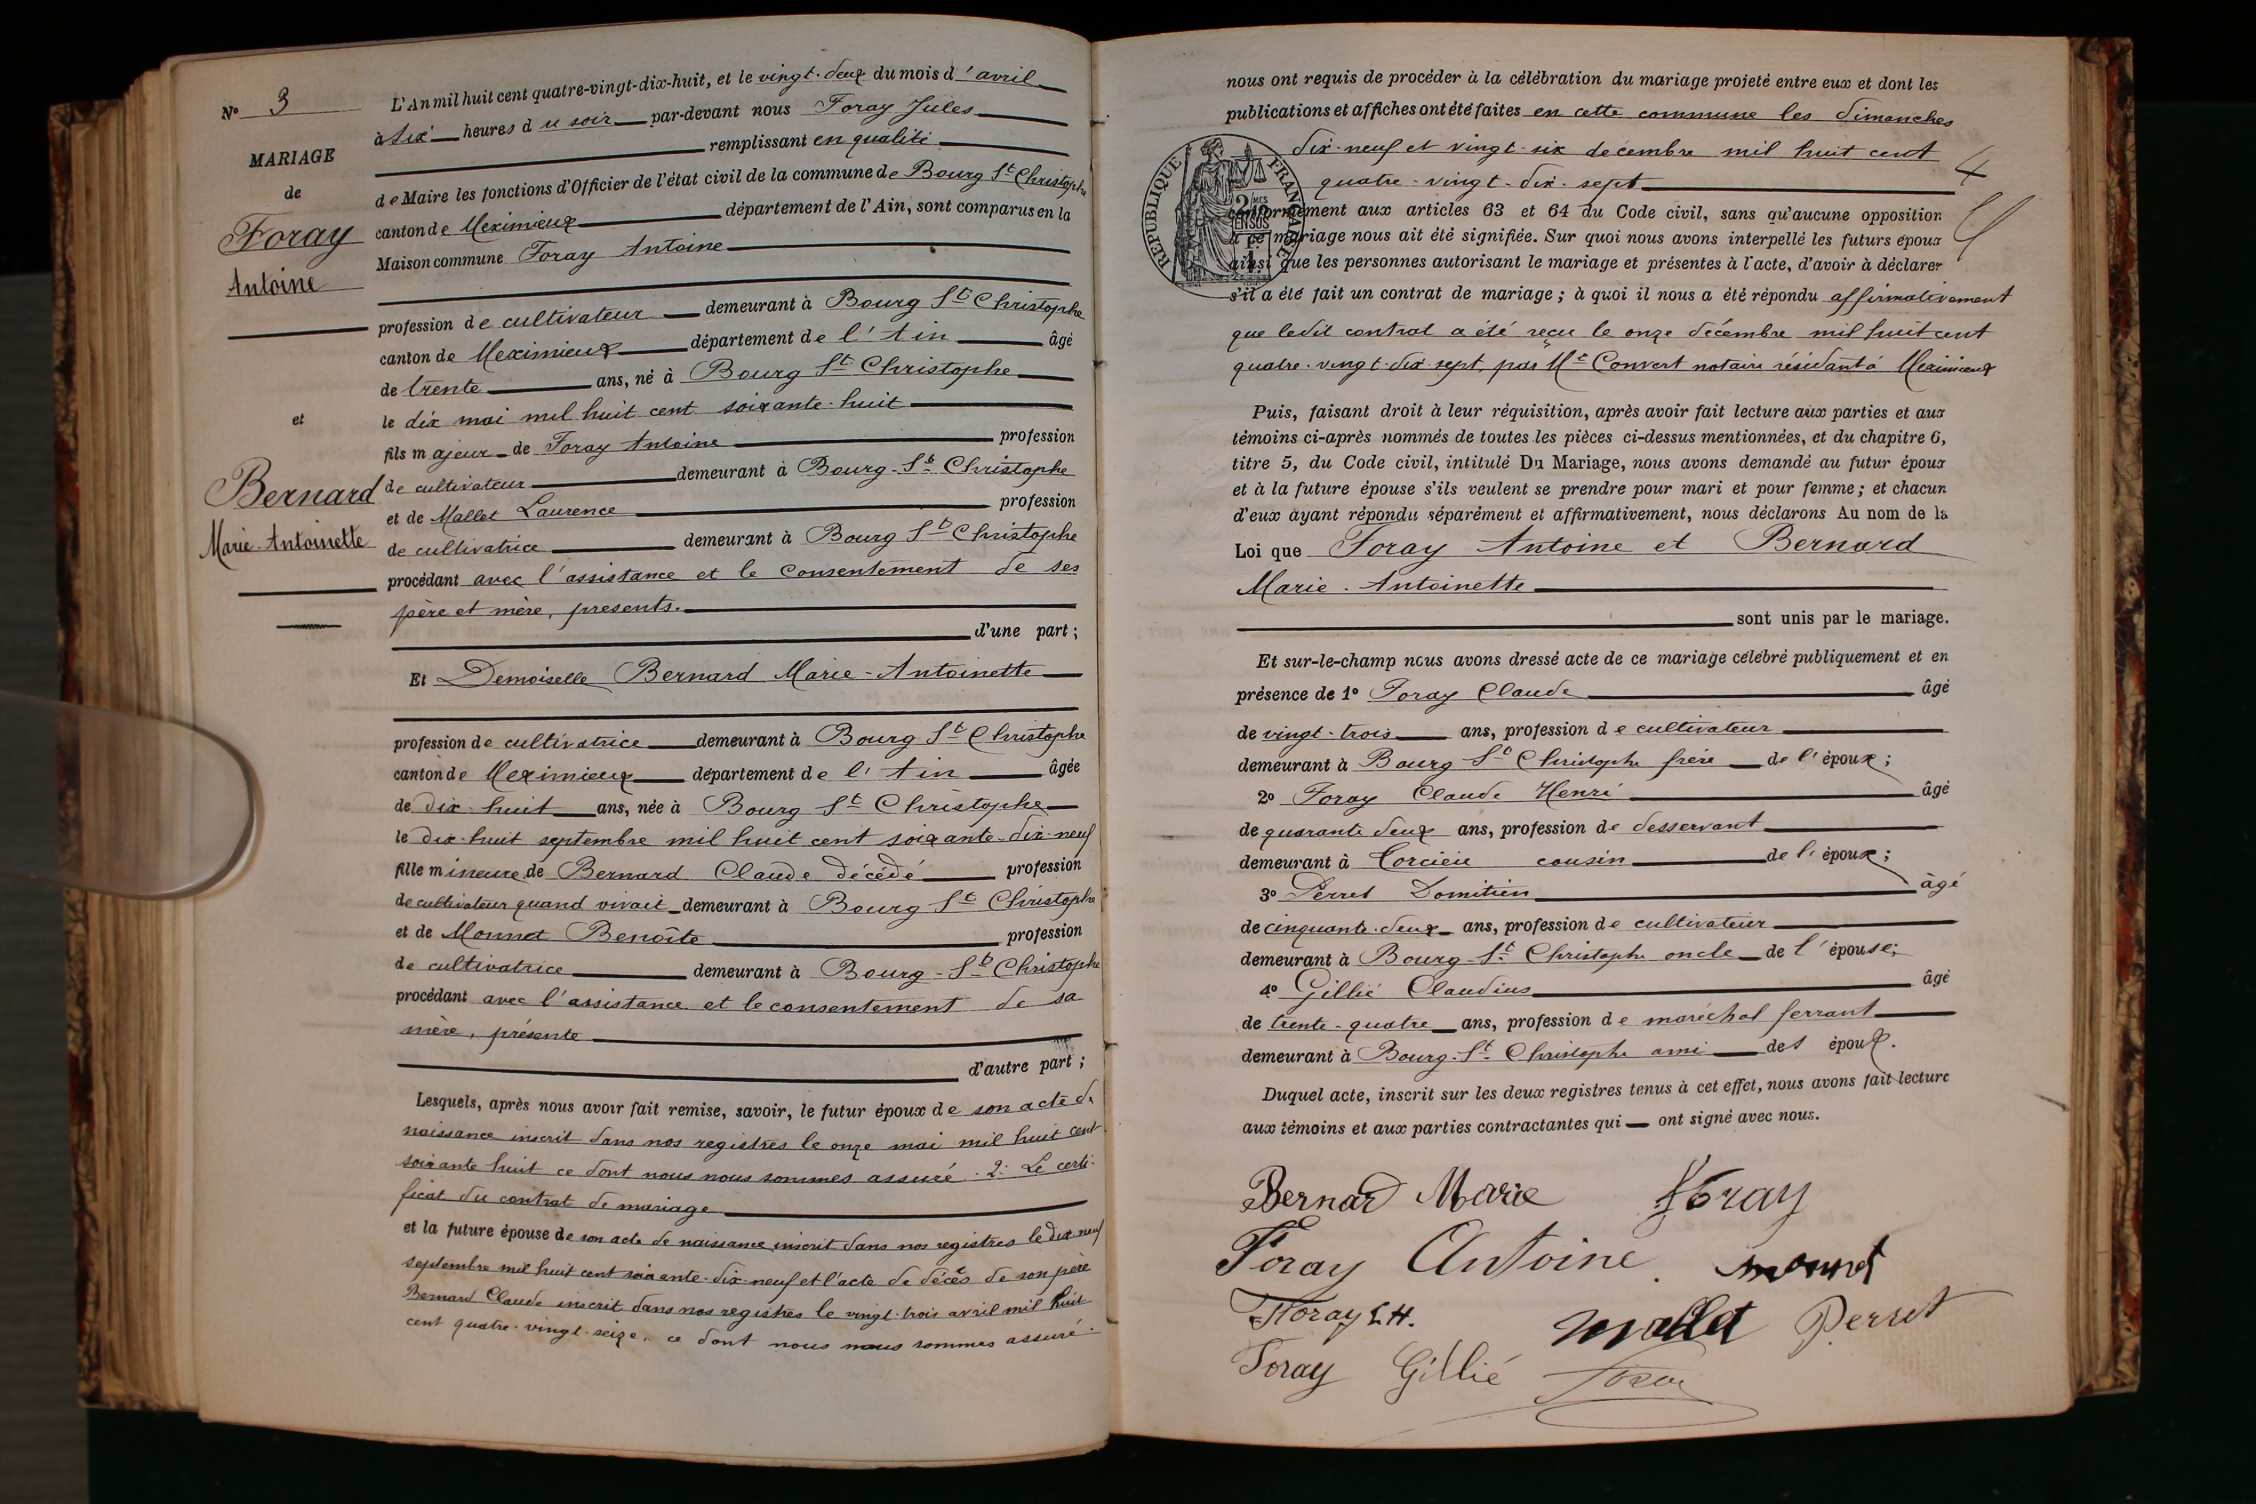 N° 3
MARIAGE
de
Foray
Antoine
et
Bernard
Marie-Antoinette
L'An mil huit cent quatre-vingt-dix-huit, et le vingt-deux du mois d'avril
à six heures du soir par-devant nous Foray Jules
remplissant en qualité
de Maire les fonctions d'Officier de l'état civil de la commune de Bourg St Christophe
canton de Meximieux département de l'Ain, sont comparus en la
Maison commune Foray Antoine
profession de cultivateur demeurant à Bourg St Christophe
canton de Meximieux département de l'Ain âgé
de trente ans, né à Bourg St Christophe
le dix mai mil huit cent soixante-huit
fils majeur de Foray Antoine profession
de cultivateur demeurant à Bourg-St Christophe
et de Mallet Laurence profession
de cultivatrice demeurant à Bourg St Christophe
procédant avec l'assistance et le consentement de ses
père et mère, présents.
d'une part;
Et Demoiselle Bernard Marie-Antoinette
profession de cultivatrice demeurant à Bourg St Christophe
canton de Meximieux département de l'Ain âgée
de dix-huit ans, née à Bourg St Christophe
le dix-huit septembre mil huit cent soixante-dix-neuf
fille mineure de Bernard Claude décédé profession
de cultivateur quand vivait demeurant à Bourg St Christophe
et de Monnet Benoîte profession
de cultivatrice demeurant à Bourg-St Christophe
procédant avec l'assistance et le consentement de sa
mère, présente
d'autre part;
Lesquels, après nous avoir fait remise, savoir, le futur époux de son acte de
naissance inscrit dans nos registres le onze mai mil huit cent
soixante huit ce dont nous nous sommes assuré. 2° Le certi-
ficat du contrat de mariage
et la future épouse de son acte de naissance inscrit dans nos registres le dix-neuf
septembre mil huit cent soixante-dix-neuf et l'acte de décès de son père
Bernard Claude inscrit dans nos registres le vingt-trois avril mil huit
cent quatre-vingt-seize, ce dont nous nous sommes assuré.
nous ont requis de procéder à la célébration du mariage projeté entre eux et dont les
publications et affiches ont été faites en cette commune les dimanches
dix-neuf et vingt-six décembre mil huit cent
quatre-vingt-dix-sept
RÉPUBLIQUE FRANÇAISE
conformément aux articles 63 et 64 du Code civil, sans qu'aucune opposition
à ce mariage nous ait été signifiée. Sur quoi nous avons interpellé les futurs époux
ainsi que les personnes autorisant le mariage et présentes à l'acte, d'avoir à déclarer
s'il a été fait un contrat de mariage; à quoi il nous a été répondu affirmativement
que ledit contrat a été reçu le onze décembre mil huit cent
quatre-vingt-dix sept, par Me Convert notaire résidant à Meximieux
Puis, faisant droit à leur réquisition, après avoir fait lecture aux parties et aux
témoins ci-après nommés de toutes les pièces ci-dessus mentionnées, et du chapitre 6,
titre 5, du Code civil, intitulé Du Mariage, nous avons demandé au futur époux
et à la future épouse s'ils veulent se prendre pour mari et pour femme; et chacun
d'eux ayant répondu séparément et affirmativement, nous déclarons Au nom de la
Loi que Foray Antoine et Bernard
Marie-Antoinette
sont unis par le mariage.
Et sur-le-champ nous avons dressé acte de ce mariage célébré publiquement et en
présence de 1° Foray Claude âgé
de vingt-trois ans, profession de cultivateur
demeurant à Bourg St Christophe frère de l'époux;
2° Foray Claude Henri âgé
de quarante deux ans, profession de desservant
demeurant à cousin de l'époux;
3° Perret Domitien âgé
de cinquante-deux ans, profession de cultivateur
demeurant à Bourg-St Christophe oncle de l'épouse;
4° Gillié Claudius âgé
de trente-quatre ans, profession de maréchal ferrant
demeurant à Bourg-St Christophe ami des époux.
Duquel acte, inscrit sur les deux registres tenus à cet effet, nous avons fait lecture
aux témoins et aux parties contractantes qui ont signé avec nous.
Bernard Marie Foray
Foray Antoine. Monnet
Foray C H. Mallet Perret
Foray Gillié Foray